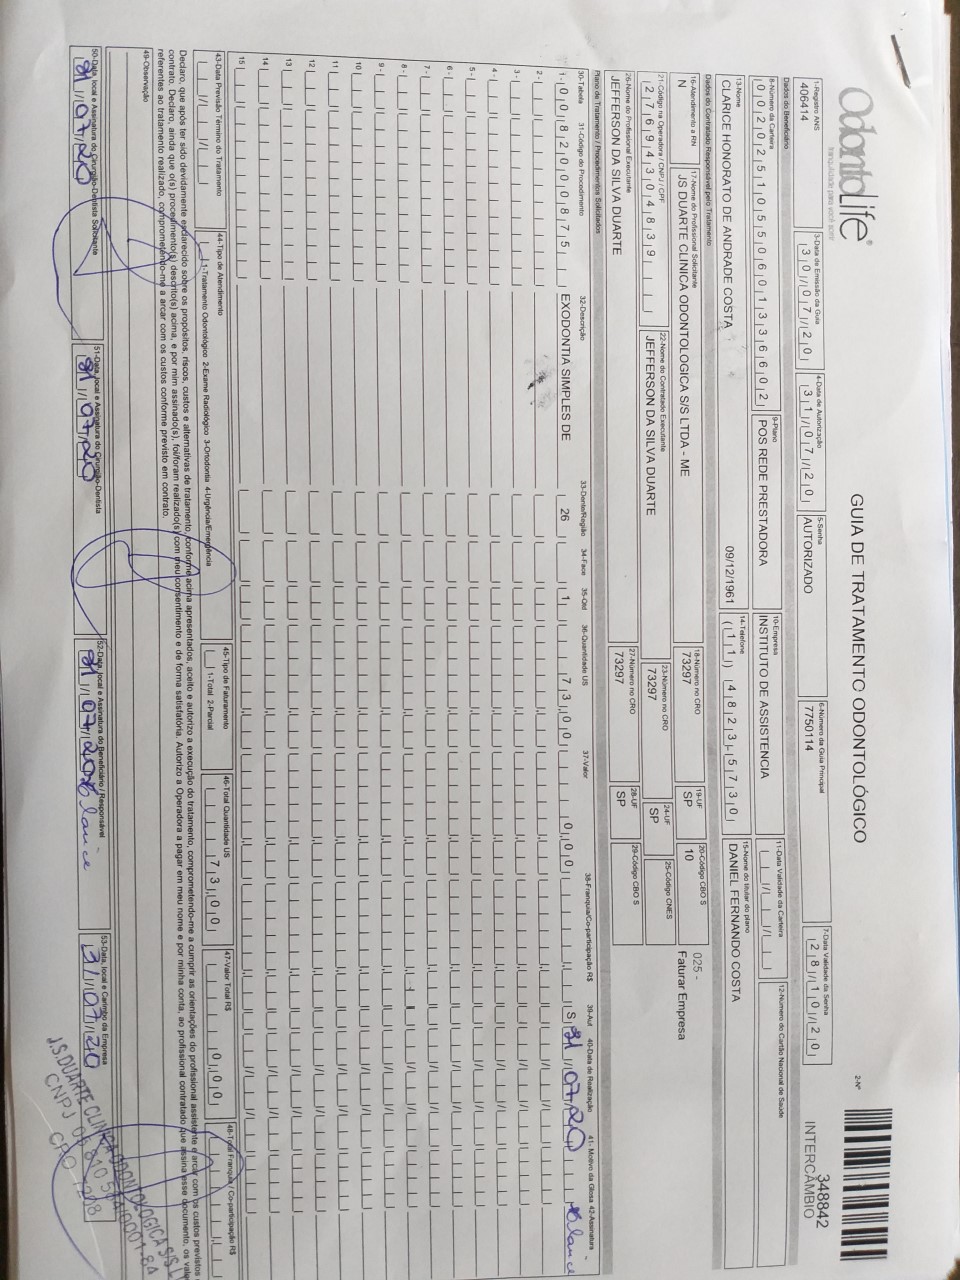 OdontoLife®
tranquilidade para você sorrir
GUIA DE TRATAMENTO ODONTOLÓGICO
2-Nº
348842
INTERCÂMBIO
1-Registro ANS
406414
3-Data de Emissão da Guia
30/07/20
4-Data de Autorização
31/07/20
5-Senha
AUTORIZADO
6-Número da Guia Principal
7750114
7-Data Validade da Senha
28/10/20
Dados do Beneficiário
8-Número da Carteira
00202510550601336602
9-Plano
POS REDE PRESTADORA
10-Empresa
INSTITUTO DE ASSISTENCIA
11-Data Validade da Carteira
12-Número do Cartão Nacional de Saúde
13-Nome
CLARICE HONORATO DE ANDRADE COSTA
09/12/1961
14-Telefone
(11) 4823-5730
15-Nome do titular do plano
DANIEL FERNANDO COSTA
Dados do Contratado Responsável pelo Tratamento
16-Atendimento a RN
N
17-Nome do Profissional Solicitante
JS DUARTE CLINICA ODONTOLOGICA S/S LTDA - ME
18-Número no CRO
73297
19-UF
SP
20-Código CBO S
10
025 -
Faturar Empresa
21-Código na Operadora / CNPJ / CPF
27694304839
22-Nome do Contratado Executante
JEFFERSON DA SILVA DUARTE
23-Número no CRO
73297
24-UF
SP
25-Código CNES
26-Nome do Profissional Executante
JEFFERSON DA SILVA DUARTE
27-Número no CRO
73297
28-UF
SP
29-Código CBO S
Plano de Tratamento / Procedimentos Solicitados
30-Tabela 31-Código do Procedimento 32-Descrição 33-Dente/Região 34-Face 35-Qtd 36-Quantidade US 37-Valor 38-Franquia/Co-participação R$ 39-Aut 40-Data de Realização 41- Motivo da Glosa 42-Assinatura
1- 00 82000875 EXODONTIA SIMPLES DE 26 1 73,00 0,00 S 31/07/20
2-
3-
4-
5-
6-
7-
8-
9-
10
11
12
13
14
15
43-Data Previsão Término do Tratamento
44-Tipo de Atendimento
1-Tratamento Odontológico 2-Exame Radiológico 3-Ortodontia 4-Urgência/Emergência
45-Tipo de Faturamento
1-Total 2-Parcial
46-Total Quantidade US
73,00
47-Valor Total R$
0,00
48-Total Franquia / Co-participação R$
Declaro, que após ter sido devidamente esclarecido sobre os propósitos, riscos, custos e alternativas de tratamento, conforme acima apresentados, aceito e autorizo a execução do tratamento, comprometendo-me a cumprir as orientações do profissional assistente e arcar com os custos previstos
contrato. Declaro, ainda que o(s) procedimento(s) descrito(s) acima, e por mim assinado(s), foi/foram realizado(s) com meu consentimento e de forma satisfatória. Autorizo a Operadora a pagar em meu nome e por minha conta, ao profissional contratado que assina esse documento, os
referentes ao tratamento realizado, comprometendo-me a arcar com os custos conforme previsto em contrato.
49-Observação
50-Data, local e Assinatura do Cirurgião-Dentista Solicitante
31/07/20
51-Data, local e Assinatura do Cirurgião-Dentista
31/07/20
52-Data, local e Assinatura do Beneficiário / Responsável
31/07/20
53-Data, local e Carimbo da Empresa
31/07/20
J.S.DUARTE CLINICA ODONTOLOGICA S/S
CNPJ
CRO